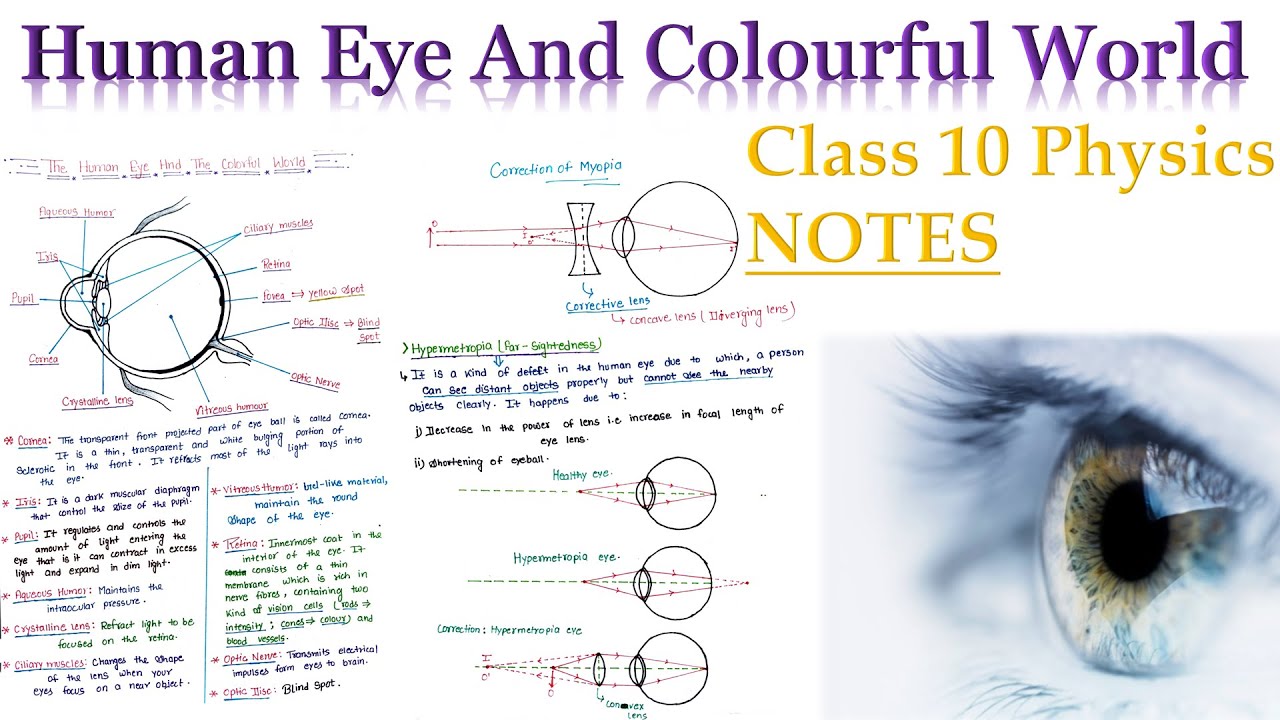 Human Eye And Colourful World
Class 10 Physics
NOTES
The Human Eye And The Colorful World
Aqueous Humor
Iris
Pupil
Cornea
Crystalline lens
ciliary muscles
Retina
Fovea ⇒ yellow spot
Optic Disc ⇒ Blind
spot
Optic Nerve
Vitreous humour
* Cornea: The transparent front projected part of eye ball is called cornea.
It is a thin, transparent and white bulging portion of
sclerotic in the front. It refracts most of the light rays into
the eye.
* Iris: It is a dark muscular diaphragm
that control the size of the pupil.
* Pupil: It regulates and controls the
amount of light entering the
eye that is it can contract in excess
light and expand in dim light.
* Aqueous Humor: Maintains the
intraocular pressure.
* Crystalline lens: Refract light to be
focused on the retina.
* Ciliary muscles: Changes the shape
of the lens when your
eyes focus on a near object.
* Vitreous Humor: Gel-like material,
maintain the round
shape of the eye.
* Retina: Innermost coat in the
interior of the eye. It
consists of a thin
membrane which is rich in
nerve fibres, containing two
kind of vision cells (rods ⇒
intensity; cones ⇒ colour) and
blood vessels.
* Optic Nerve: Transmits electrical
impulses form eyes to brain.
* Optic Disc: Blind Spot.
Correction of Myopia
O
I
O'
I'
Corrective lens
↳ concave lens (Diverging lens)
> Hypermetropia (Far-Sightedness)
↳ It is a kind of defect in the human eye due to which, a person
can see distant objects properly but cannot see the nearby
objects clearly. It happens due to:
i) Decrease in the power of lens i.e. increase in focal length of
eye lens.
ii) Shortening of eyeball.
Healthy eye.
Hypermetropia eye.
Correction: Hypermetropia eye
I
O'
O
convex
lens